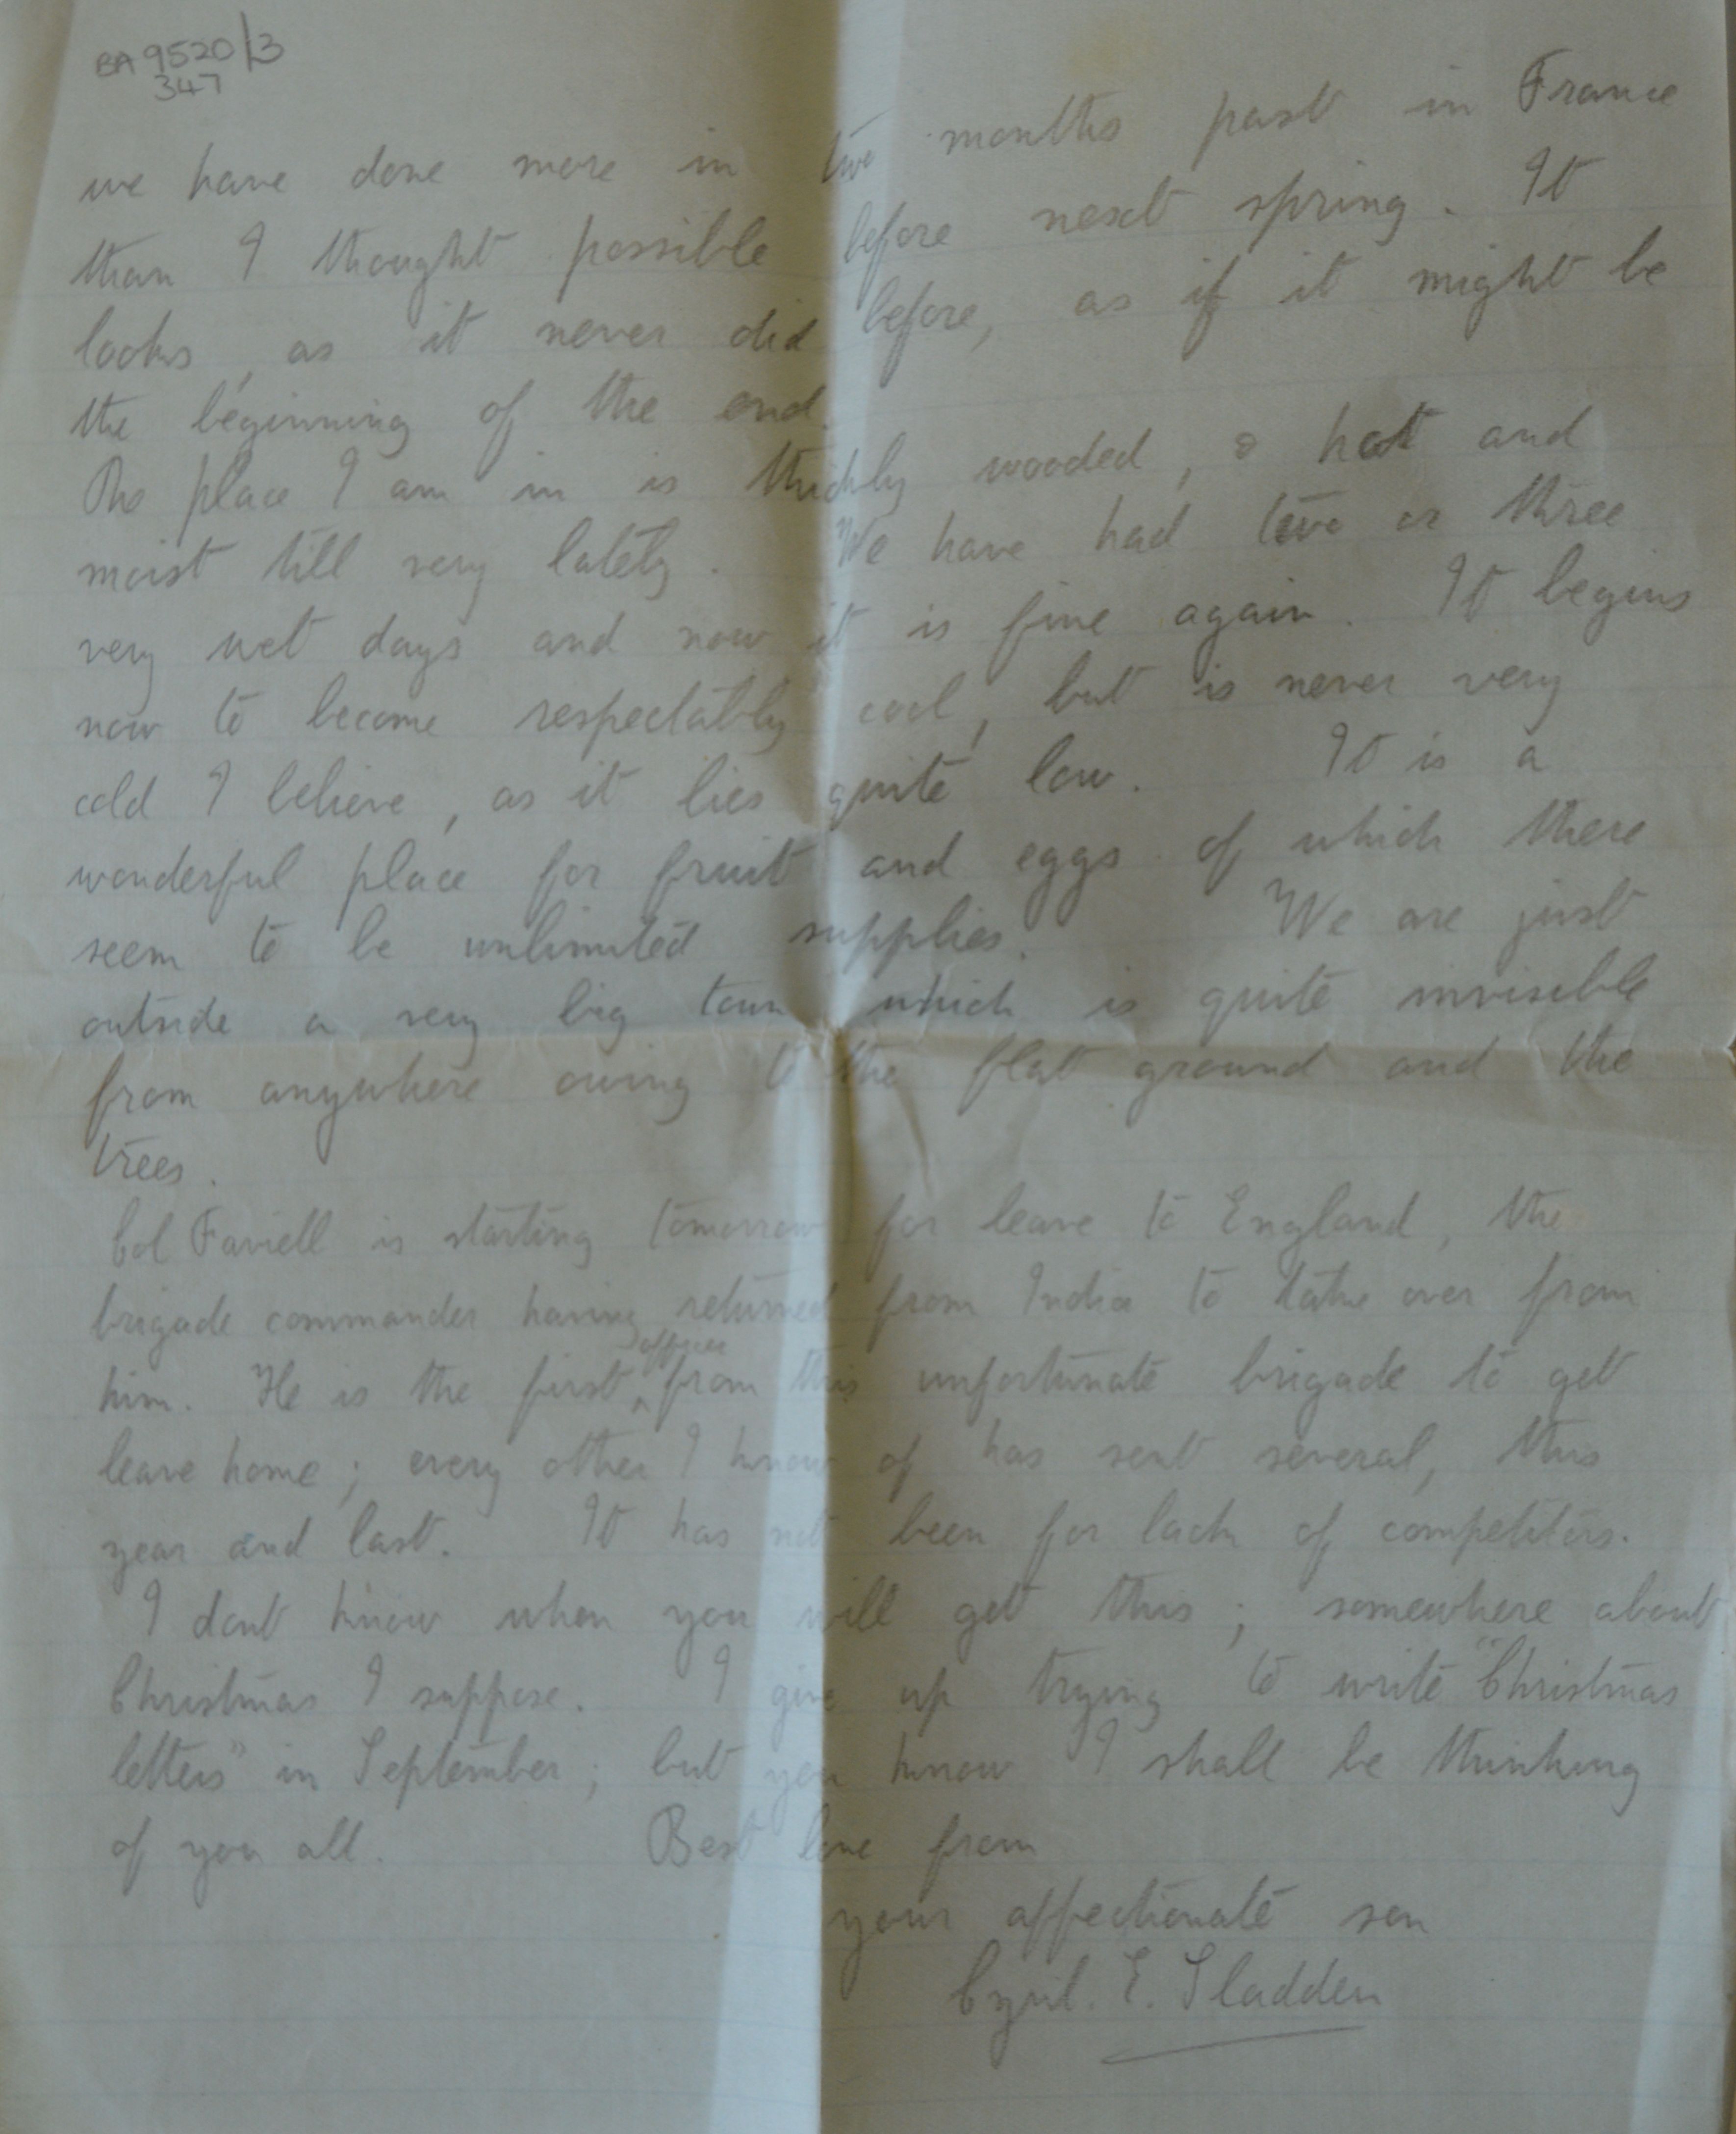 BA 9520/3
347
we have done more in two months past in France
than I thought possible before next spring. It
looks, as it never did before, as if it might be
the beginning of the end.
The place I am in is thickly wooded, & hot and
moist till very lately. We have had two or three
very wet days and now it is fine again. It begins
now to become respectably cool, but is never very
cold I believe, as it lies quite low. It is a
wonderful place for fruit and eggs of which there
seem to be unlimited supplies. We are just
outside a very big town which is quite invisible
from anywhere owing to the flat ground and the
trees.
Col Faviell is starting tomorrow for leave to England, the
brigade commander having returned from India to take over from
him. He is the first officer from this unfortunate brigade to get
leave home; every other I know of has sent several, this
year and last. It has not been for lack of competitors.
I dont know when you will get this; somewhere about
Christmas I suppose. I give up trying to write "Christmas
letters" in September; but you know I shall be thinking
of you all. Best love from
your affectionate son
Cyril. E. Sladden